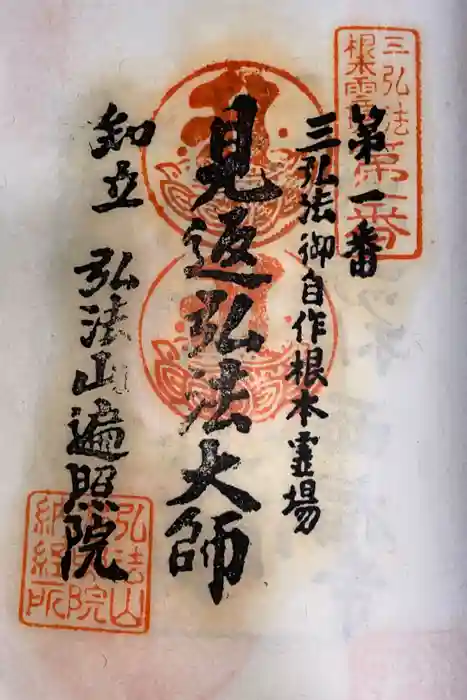 第一番
三弘法御自作根本霊場
見返弘法大師
知立
弘法山遍照院
三弘法
根本霊
第一番
弘法山
院
納経所